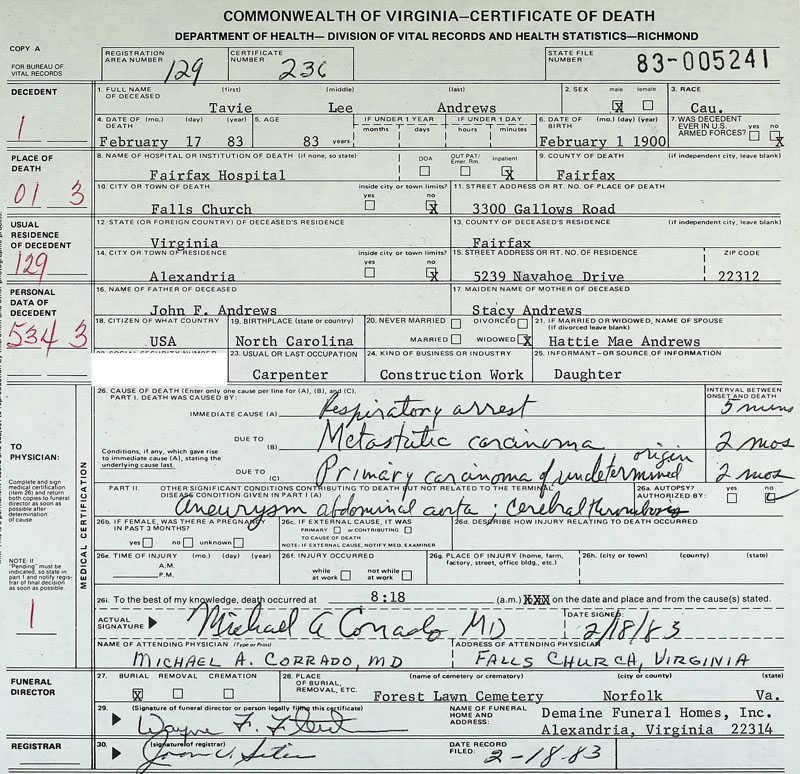 COMMONWEALTH OF VIRGINIA—CERTIFICATE OF DEATH
DEPARTMENT OF HEALTH— DIVISION OF VITAL RECORDS AND HEALTH STATISTICS—RICHMOND
COPY A
FOR BUREAU OF VITAL RECORDS
REGISTRATION AREA NUMBER 129
CERTIFICATE NUMBER 236
STATE FILE NUMBER 83-005241
DECEDENT
1
1. FULL NAME OF DECEASED (first) (middle) (last)
Tavie Lee Andrews
2. SEX male X female
3. RACE
Cau.
4. DATE OF DEATH (mo.) (day) (year)
February 17 83
5. AGE
83 years
IF UNDER 1 YEAR months days
IF UNDER 1 DAY hours minutes
6. DATE OF BIRTH (mo.) (day) (year)
February 1 1900
7. WAS DECEDENT EVER IN U.S. ARMED FORCES? yes no X
PLACE OF DEATH
01 3
8. NAME OF HOSPITAL OR INSTITUTION OF DEATH (if none, so state)
Fairfax Hospital
DOA OUT PAT/ Emer. Rm. Inpatient X
9. COUNTY OF DEATH (if independent city, leave blank)
Fairfax
10. CITY OR TOWN OF DEATH inside city or town limits? yes no X
Falls Church
11. STREET ADDRESS OR RT. NO. OF PLACE OF DEATH
3300 Gallows Road
USUAL RESIDENCE OF DECEDENT
129
12. STATE (OR FOREIGN COUNTRY) OF DECEASED'S RESIDENCE
Virginia
13. COUNTY OF DECEASED'S RESIDENCE (if independent city, leave blank)
Fairfax
14. CITY OR TOWN OF RESIDENCE inside city or town limits? yes no X
Alexandria
15. STREET ADDRESS OR RT. NO. OF RESIDENCE ZIP CODE
5239 Navahoe Drive 22312
PERSONAL DATA OF DECEDENT
534 3
16. NAME OF FATHER OF DECEASED
John F. Andrews
17. MAIDEN NAME OF MOTHER OF DECEASED
Stacy Andrews
18. CITIZEN OF WHAT COUNTRY
USA
19. BIRTHPLACE (state or country)
North Carolina
20. NEVER MARRIED DIVORCED
MARRIED WIDOWED X
21. IF MARRIED OR WIDOWED, NAME OF SPOUSE (if divorced leave blank)
Hattie Mae Andrews
23. USUAL OR LAST OCCUPATION
Carpenter
24. KIND OF BUSINESS OR INDUSTRY
Construction Work
25. INFORMANT—OR SOURCE OF INFORMATION
Daughter
TO PHYSICIAN:
Complete and sign medical certification (item 26) and return both copies to funeral director as soon as possible after determination of cause.
NOTE: If "Pending" must be indicated, so state in part 1 and notify registrar of final decision as soon as possible.
1
MEDICAL CERTIFICATION
26. CAUSE OF DEATH (Enter only one cause per line for (A), (B), and (C).
PART I. DEATH WAS CAUSED BY:
INTERVAL BETWEEN ONSET AND DEATH
IMMEDIATE CAUSE (A) Respiratory arrest 5 mins
DUE TO (B) Metastatic carcinoma 2 mos
Conditions, if any, which gave rise to immediate cause (A), stating the underlying cause last.
DUE TO (C) Primary carcinoma of undetermined origin 2 mos
PART II. OTHER SIGNIFICANT CONDITIONS CONTRIBUTING TO DEATH BUT NOT RELATED TO THE TERMINAL DISEASE CONDITION GIVEN IN PART I (A)
Aneurysm abdominal aorta ; cerebral thrombosis
26a. AUTOPSY? AUTHORIZED BY: yes no
26b. IF FEMALE, WAS THERE A PREGNANCY IN PAST 3 MONTHS?
yes no unknown
26c. IF EXTERNAL CAUSE, IT WAS
PRIMARY or CONTRIBUTING
TO CAUSE OF DEATH
NOTE: IF EXTERNAL CAUSE, NOTIFY MED. EXAMINER
26d. DESCRIBE HOW INJURY RELATING TO DEATH OCCURRED
26e. TIME OF INJURY (mo.) (day) (year)
A.M.
P.M.
26f. INJURY OCCURRED
while at work not while at work
26g. PLACE OF INJURY (home, farm, factory, street, office bldg., etc.)
26h. (city or town) (county) (state)
26i. To the best of my knowledge, death occurred at 8:18 (a.m.) XXX on the date and place and from the cause(s) stated.
ACTUAL SIGNATURE Michael A Corrado MD
DATE SIGNED: 2/18/83
NAME OF ATTENDING PHYSICIAN (Type or Print)
MICHAEL A. CORRADO, MD
ADDRESS OF ATTENDING PHYSICIAN
FALLS CHURCH, VIRGINIA
FUNERAL DIRECTOR
27. BURIAL REMOVAL CREMATION
X
28. PLACE OF BURIAL, REMOVAL, ETC. (name of cemetery or crematory) (city or county) (state)
Forest Lawn Cemetery Norfolk Va.
29. (Signature of funeral director or person legally filing this certificate)
Wayne F.
NAME OF FUNERAL HOME AND ADDRESS:
Demaine Funeral Homes, Inc.
Alexandria, Virginia 22314
REGISTRAR
30. (signature of registrar)
DATE RECORD FILED: 2-18-83